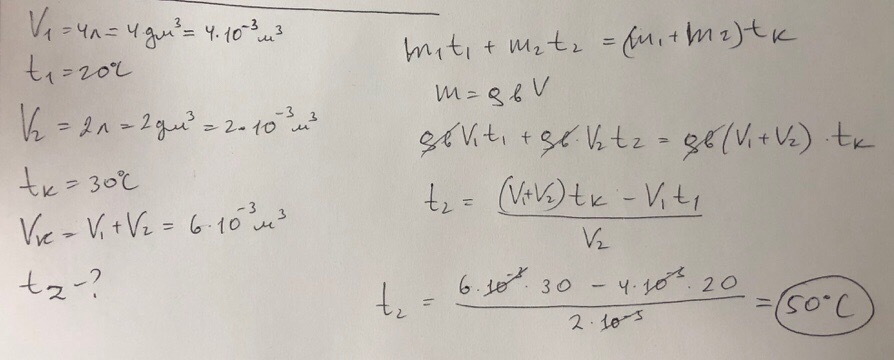 V₁ = 4л = 4 дм³ = 4·10⁻³ м³
t₁ = 20°C
V₂ = 2л = 2 дм³ = 2·10⁻³ м³
tк = 30°C
Vк = V₁ + V₂ = 6·10⁻³ м³
t₂ - ?
m₁t₁ + m₂t₂ = (m₁ + m₂)tк
m = ρв V
ρв V₁t₁ + ρв · V₂t₂ = ρв (V₁ + V₂) · tк
t₂ = ((V₁+V₂)tк - V₁t₁) / V₂
t₂ = (6·10⁻³ · 30 - 4·10⁻³ · 20) / (2·10⁻³) = 50°C